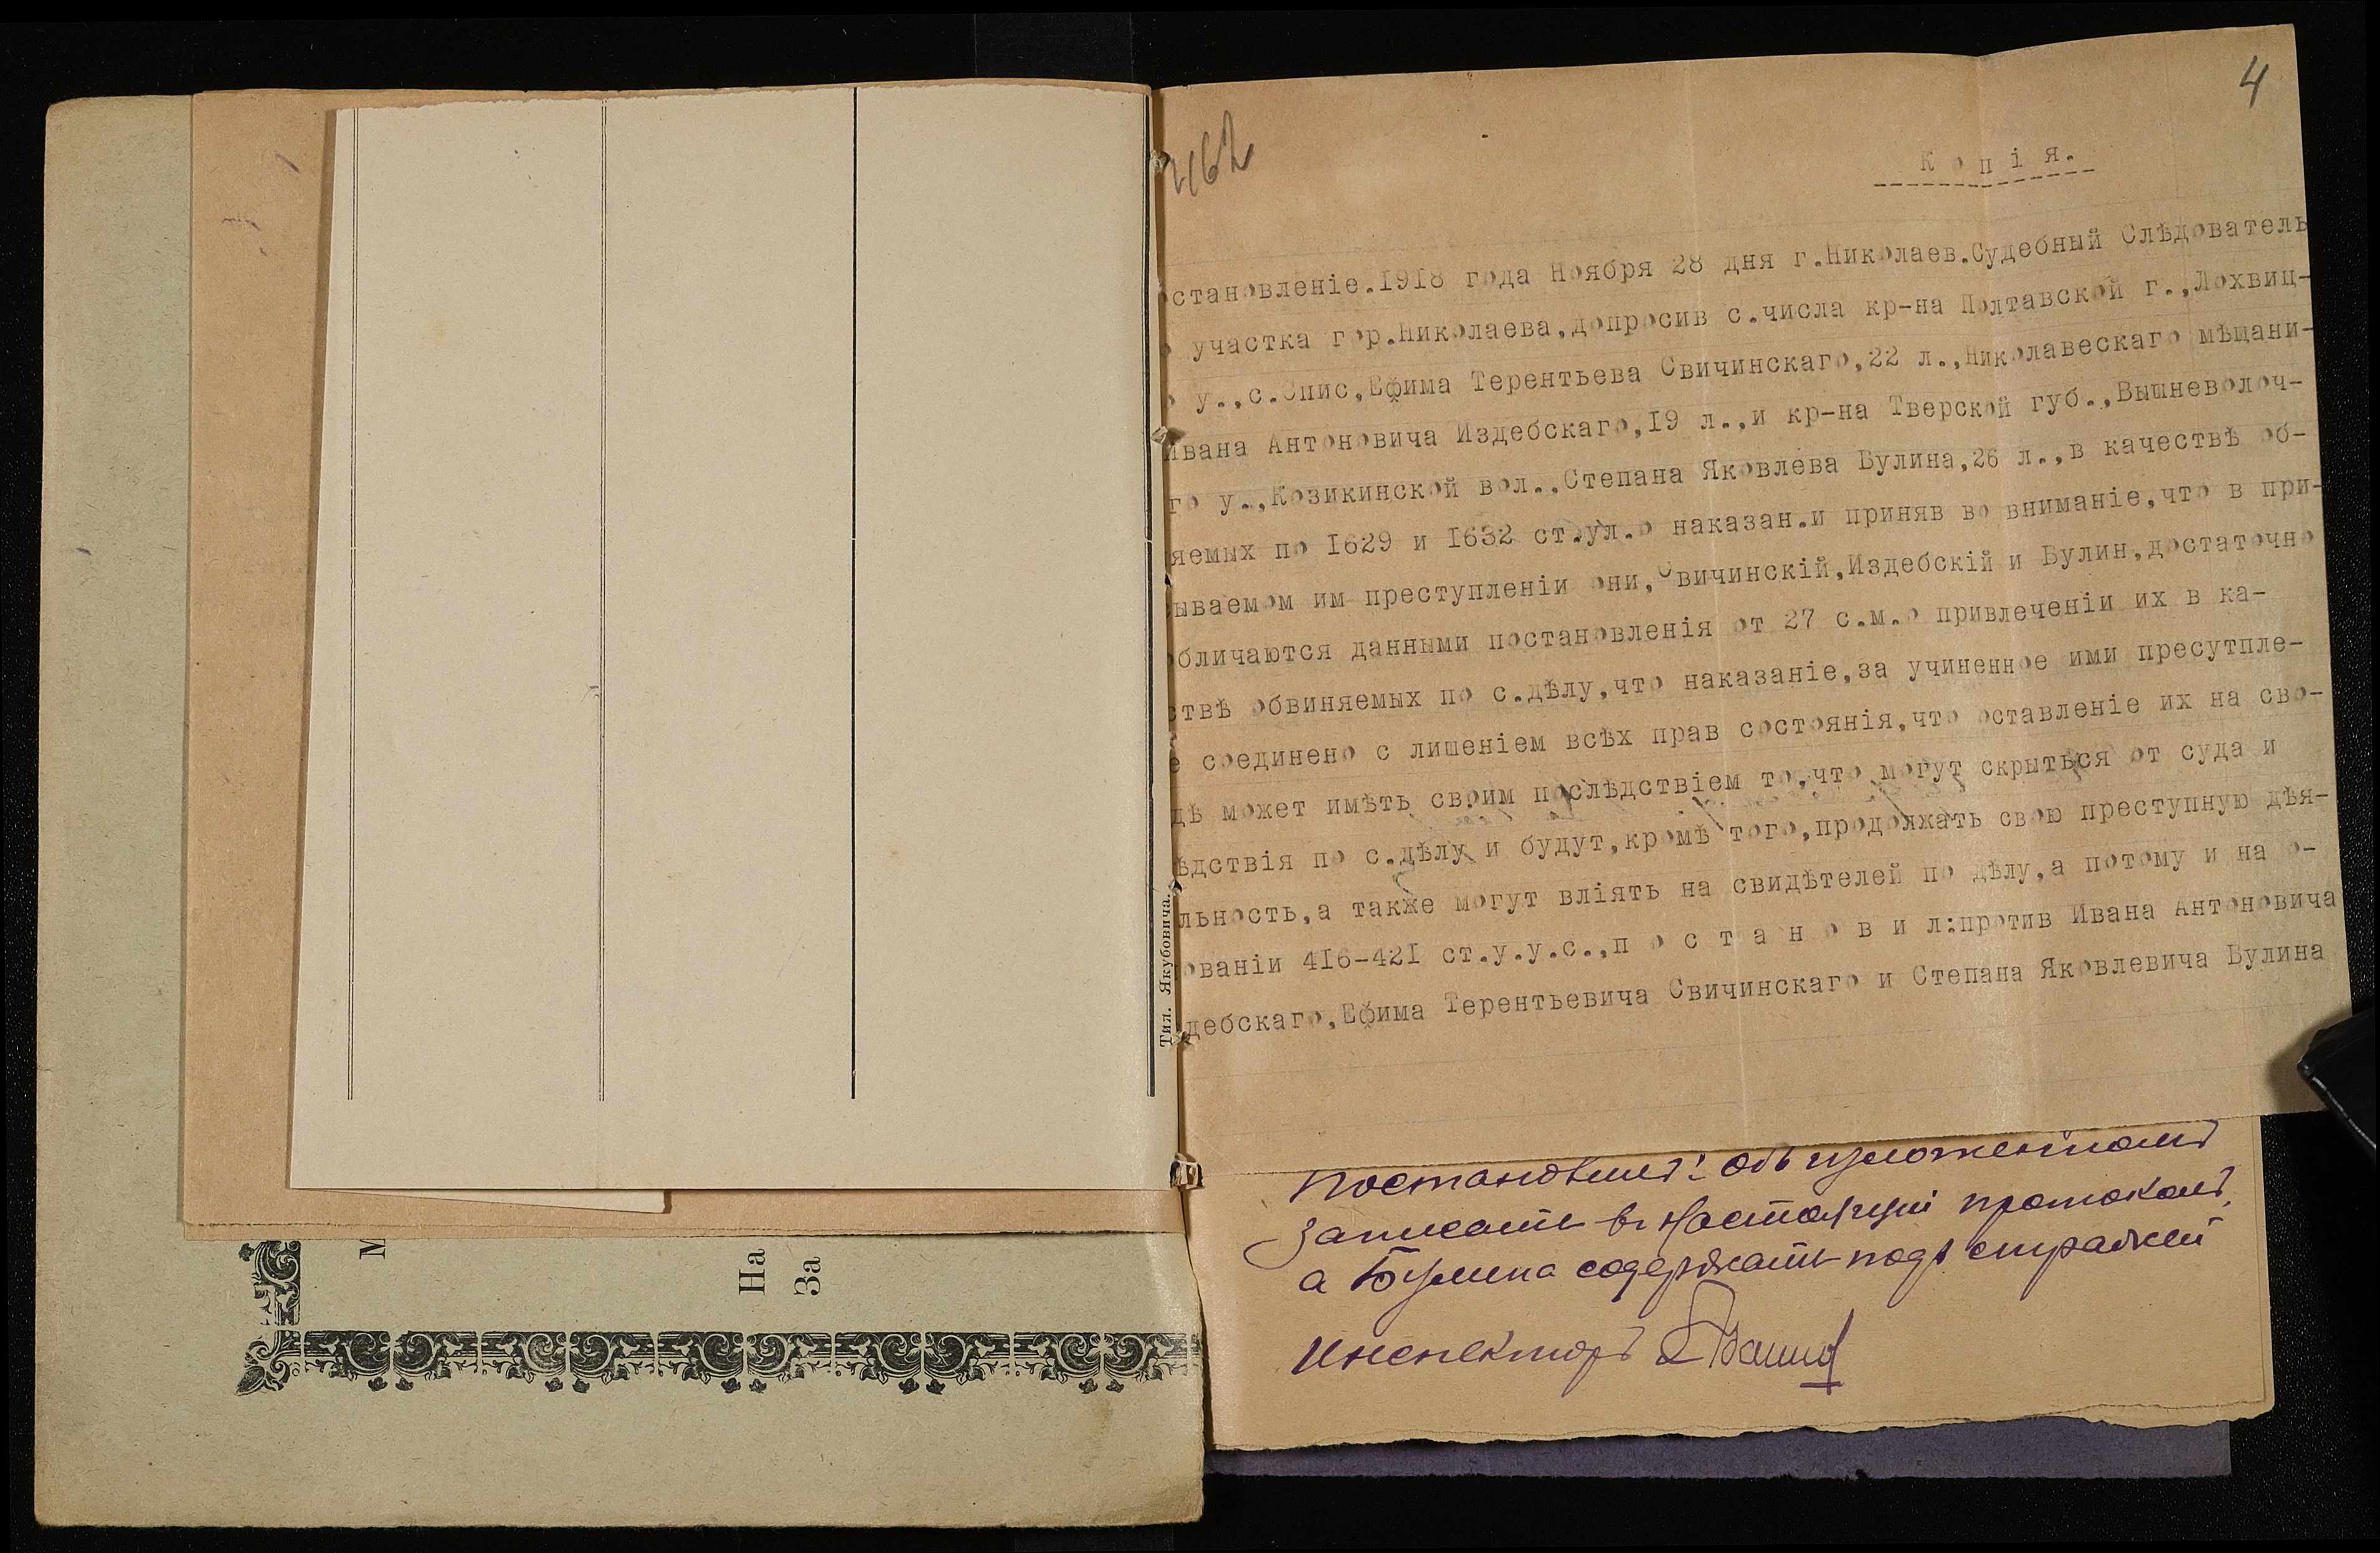 4
462
Копія.
остановленіе.1918 года Ноября 28 дня г.Николаев.Судебный Слѣдователь
о участка гор.Николаева,допросив с.числа кр-на Полтавской г.,Лохвиц-
о у.,с.Спис,Ефима Терентьева Свичинскаго,22 л.,Николавескаго мѣщани-
Ивана Антоновича Издебскаго,19 л.,и кр-на Тверской губ.,Вышневолоч-
го у.,Козикинской вол.,Степана Яковлева Булина,26 л.,в качествѣ об-
яемых по 1629 и 1632 ст.ул.о наказан.и приняв во вниманіе,что в при-
ываемом им преступленіи они,Свичинскій,Издебскій и Булин,достаточно
обличаются данными постановленія от 27 с.м.о привлеченіи их в ка-
ствѣ обвиняемых по с.дѣлу,что наказаніе,за учиненное ими пресутпле-
е соединено с лишеніем всѣх прав состоянія,что оставленіе их на сво-
дѣ может имѣть своим послѣдствіем то,что могут скрыться от суда и
ѣдствія по с.дѣлу и будут,кромѣ того,продолжать свою преступную дѣя-
льность,а также могут вліять на свидѣтелей по дѣлу,а потому и на о-
ованіи 416-421 ст.у.у.с.,п о с т а н о в и л:против Ивана Антоновича
дебскаго,Ефима Терентьевича Свичинскаго и Степана Яковлевича Булина
Постановилъ: объ изложенномъ
записать въ настоящій протоколъ,
а Булина содержать подъ стражей
Инспекторъ
Тип. Якубовича.
М
На
За